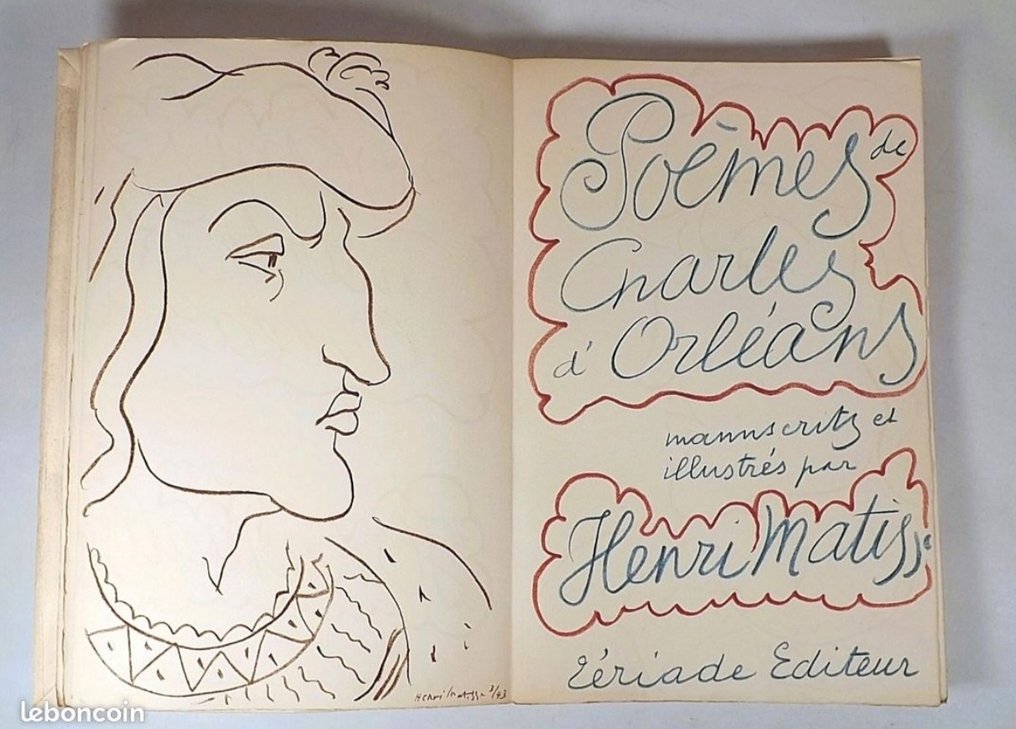 Poèmes de
Charles
d'Orléans
manuscrits et
illustrés par
Henri Matisse
Tériade Editeur
Henri Matisse 3/43
leboncoin